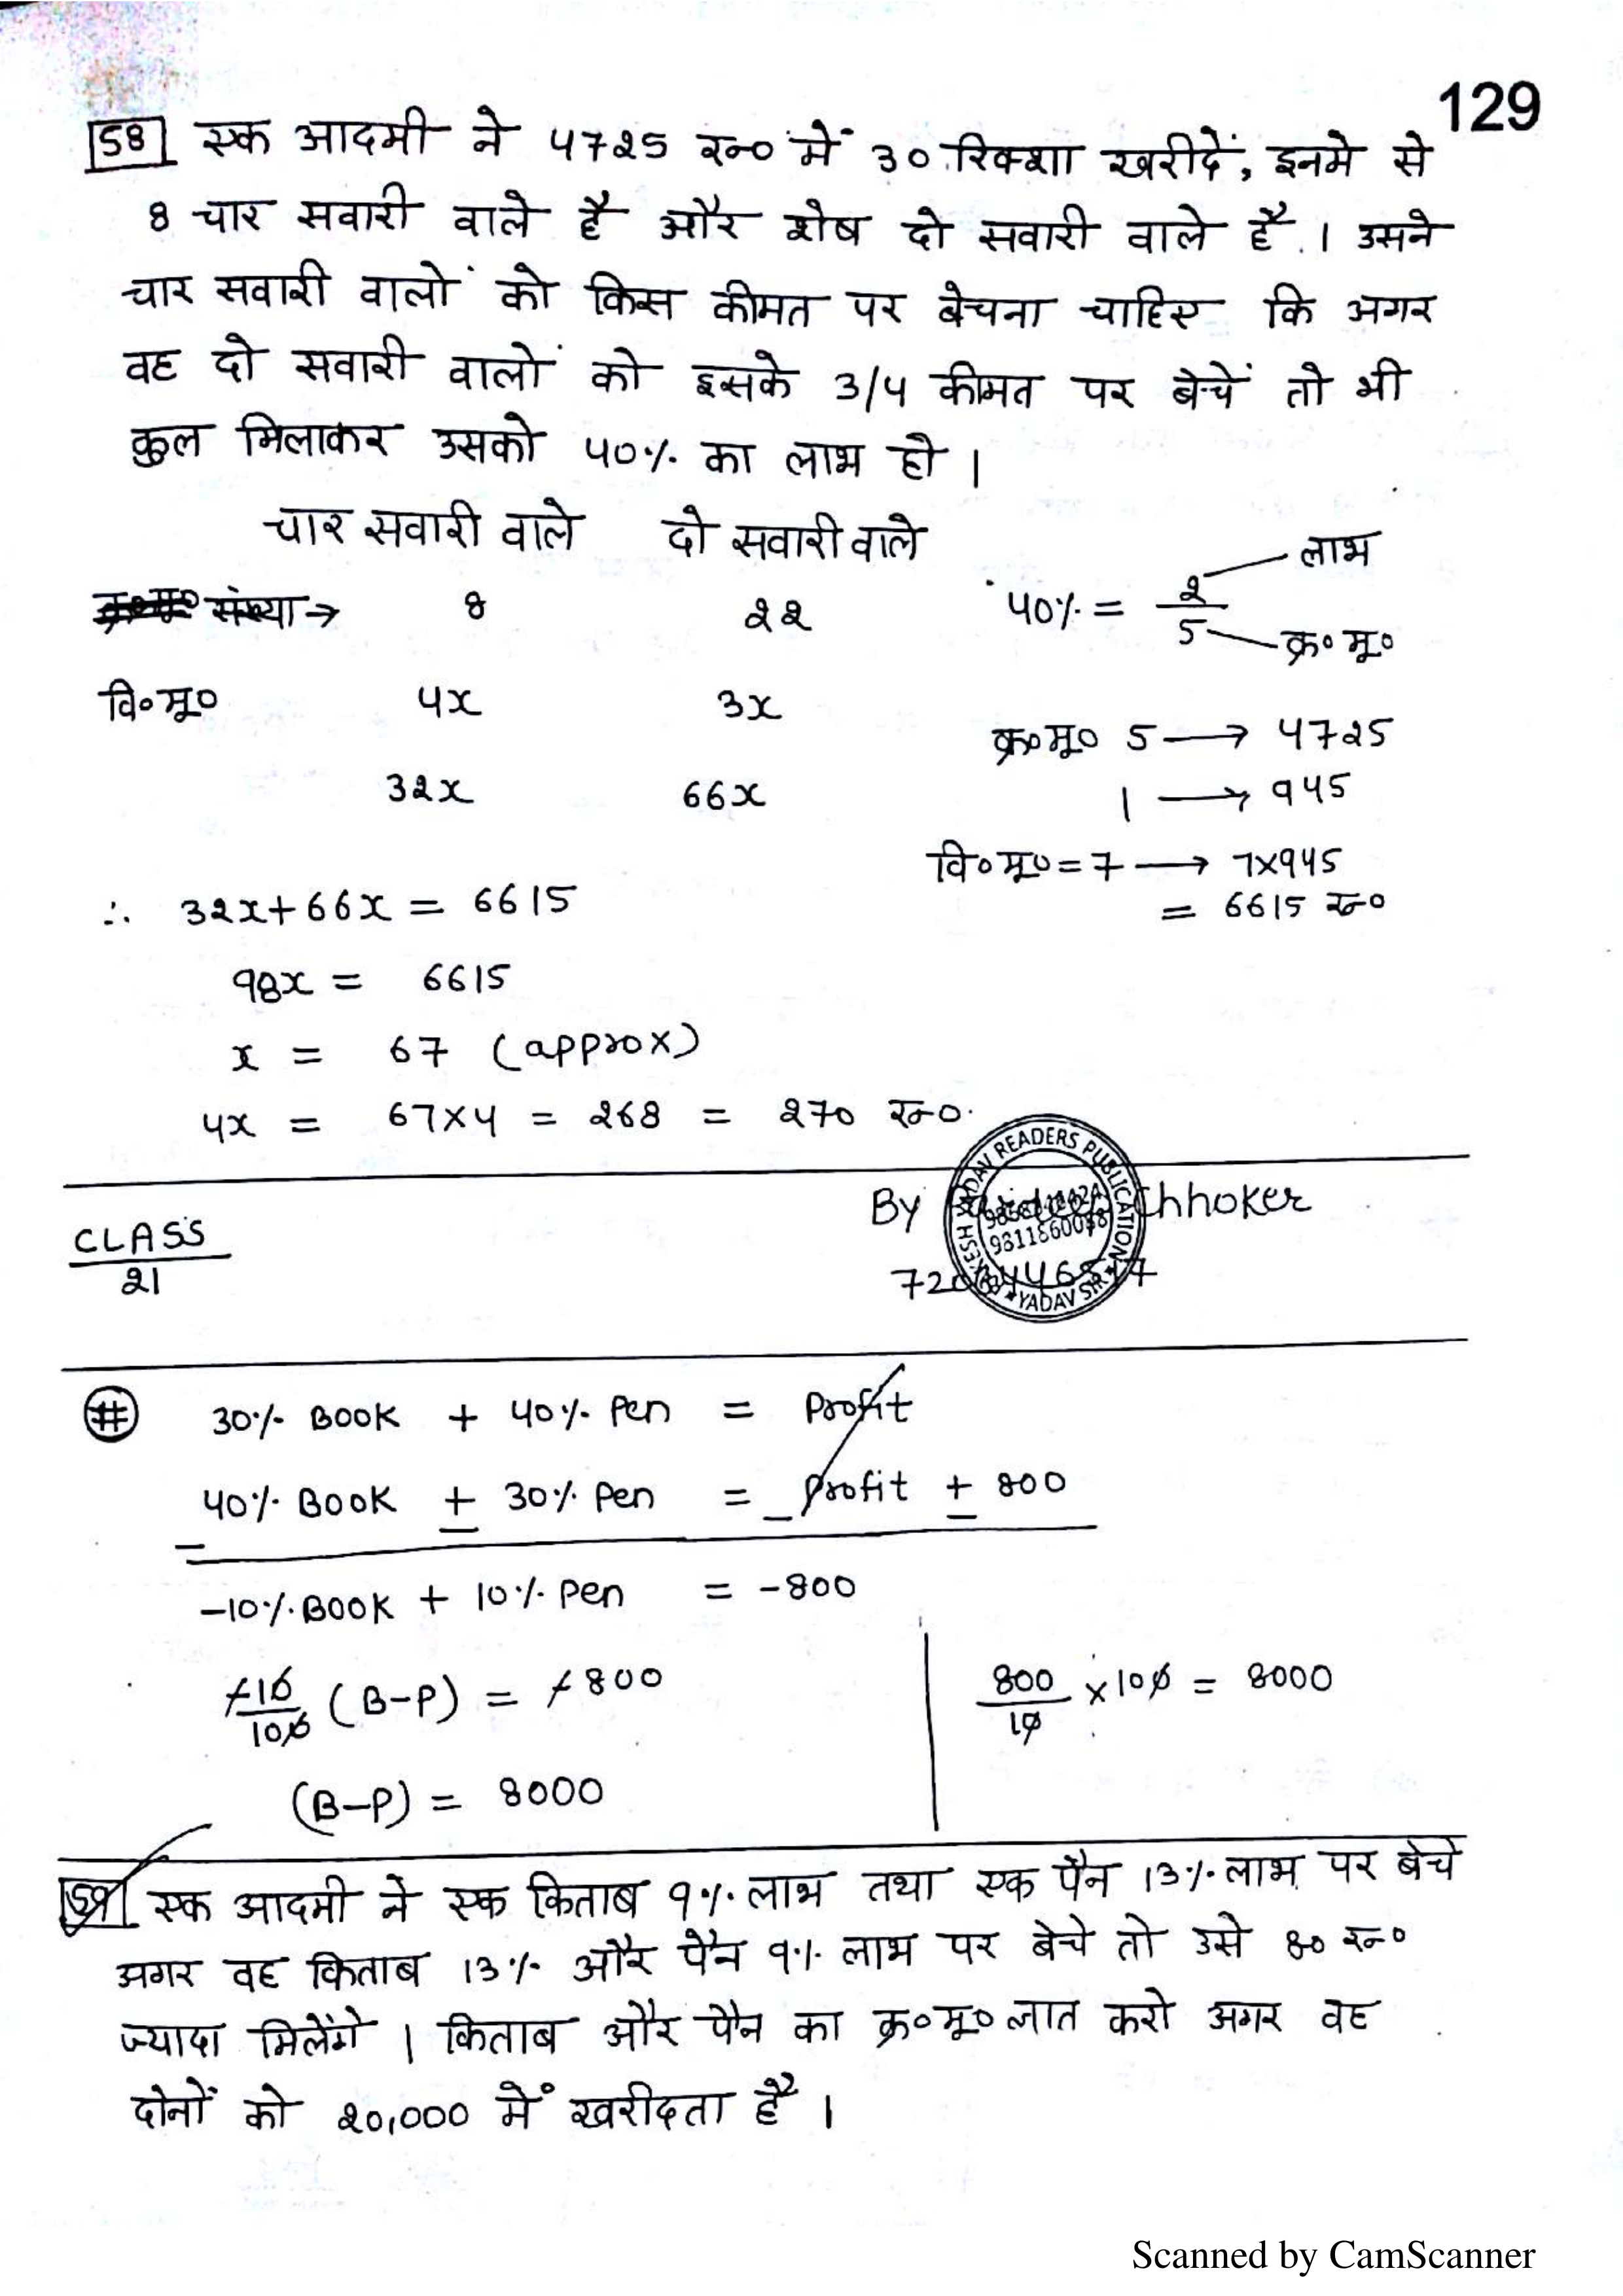 129
58 एक आदमी ने 4725 रू० में 30 रिक्शा खरीदें, इनमे से
8 चार सवारी वाले है और शेष दो सवारी वाले है । उसने
चार सवारी वालों को किस कीमत पर बेचना चाहिए कि अगर
वह दो सवारी वालों को इसके 3/4 कीमत पर बेचें तो भी
कुल मिलाकर उसको 40% का लाभ हो ।
चार सवारी वाले दो सवारी वाले
संख्या → 8 22
वि०मू० 4x 3x
32x 66x
40% = 2/5 लाभ क्र० मू०
क्र०मू० 5 → 4725
1 → 945
वि०मू० = 7 → 7×945
= 6615 रू०
∴ 32x+66x = 6615
98x = 6615
x = 67 (approx)
4x = 67×4 = 268 = 270 रू०
By Chhoker
READERS PUBLICATION
YADAV SIR
CLASS
21
# 30% Book + 40% Pen = Profit
40% Book + 30% Pen = Profit + 800
-10% Book + 10% Pen = -800
-10/100 (B-P) = -800
(B-P) = 8000
800/10 ×100 = 8000
59 एक आदमी ने एक किताब 9% लाभ तथा एक पैन 13% लाभ पर बेचे
अगर वह किताब 13% और पैन 9% लाभ पर बेचे तो उसे 80 रू०
ज्यादा मिलेंगे । किताब और पैन का क्र०मू० ज्ञात करो अगर वह
दोनों को 20,000 में खरीदता है ।
Scanned by CamScanner